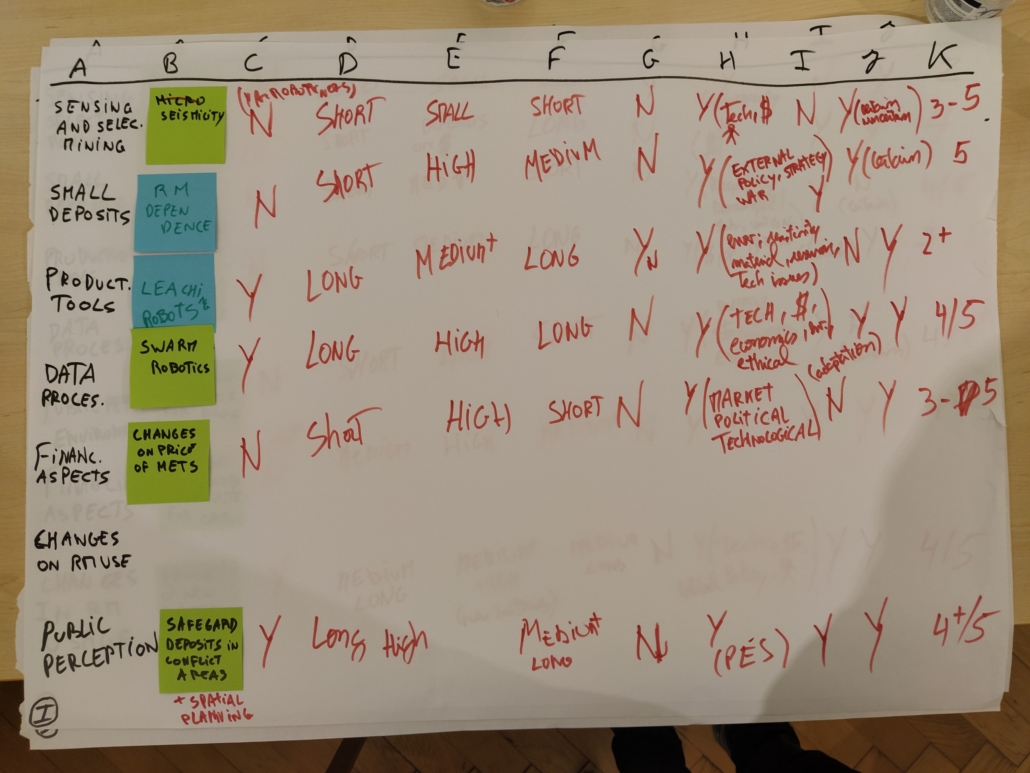 A B C D E F G H I J K
SENSING
AND SELEC.
MINING
MICRO
SEISMICITY
N SHORT SMALL SHORT N Y (Tech, $ N Y (certain
uncertain) 3-5
SMALL
DEPOSITS
RM
DEPEN
DENCE
N SHORT HIGH MEDIUM N Y (EXTERNAL
POLICY, STRATEGY
WAR Y Y (certain) 5
PRODUCT.
TOOLS
LEACHI
ROBOTS
Y LONG MEDIUM+ LONG Y N Y (
Tech issues) N Y 2+
DATA
PROCES.
SWARM
ROBOTICS
Y LONG HIGH LONG N Y (TECH, $,
economics,
ethical Y (adaptation) Y 4/5
FINANC.
ASPECTS
CHANGES
ON PRICE
OF METS
N Short HIGH SHORT N Y (MARKET
POLITICAL
TECHNOLOGICAL) N Y 3-5
CHANGES
ON RM USE
PUBLIC
PERCEPTION
SAFEGARD
DEPOSITS IN
CONFLICT
AREAS
+ SPATIAL
PLANNING
Y Long High MEDIUM+
LONG N Y
(PES) Y Y 4+/5
I